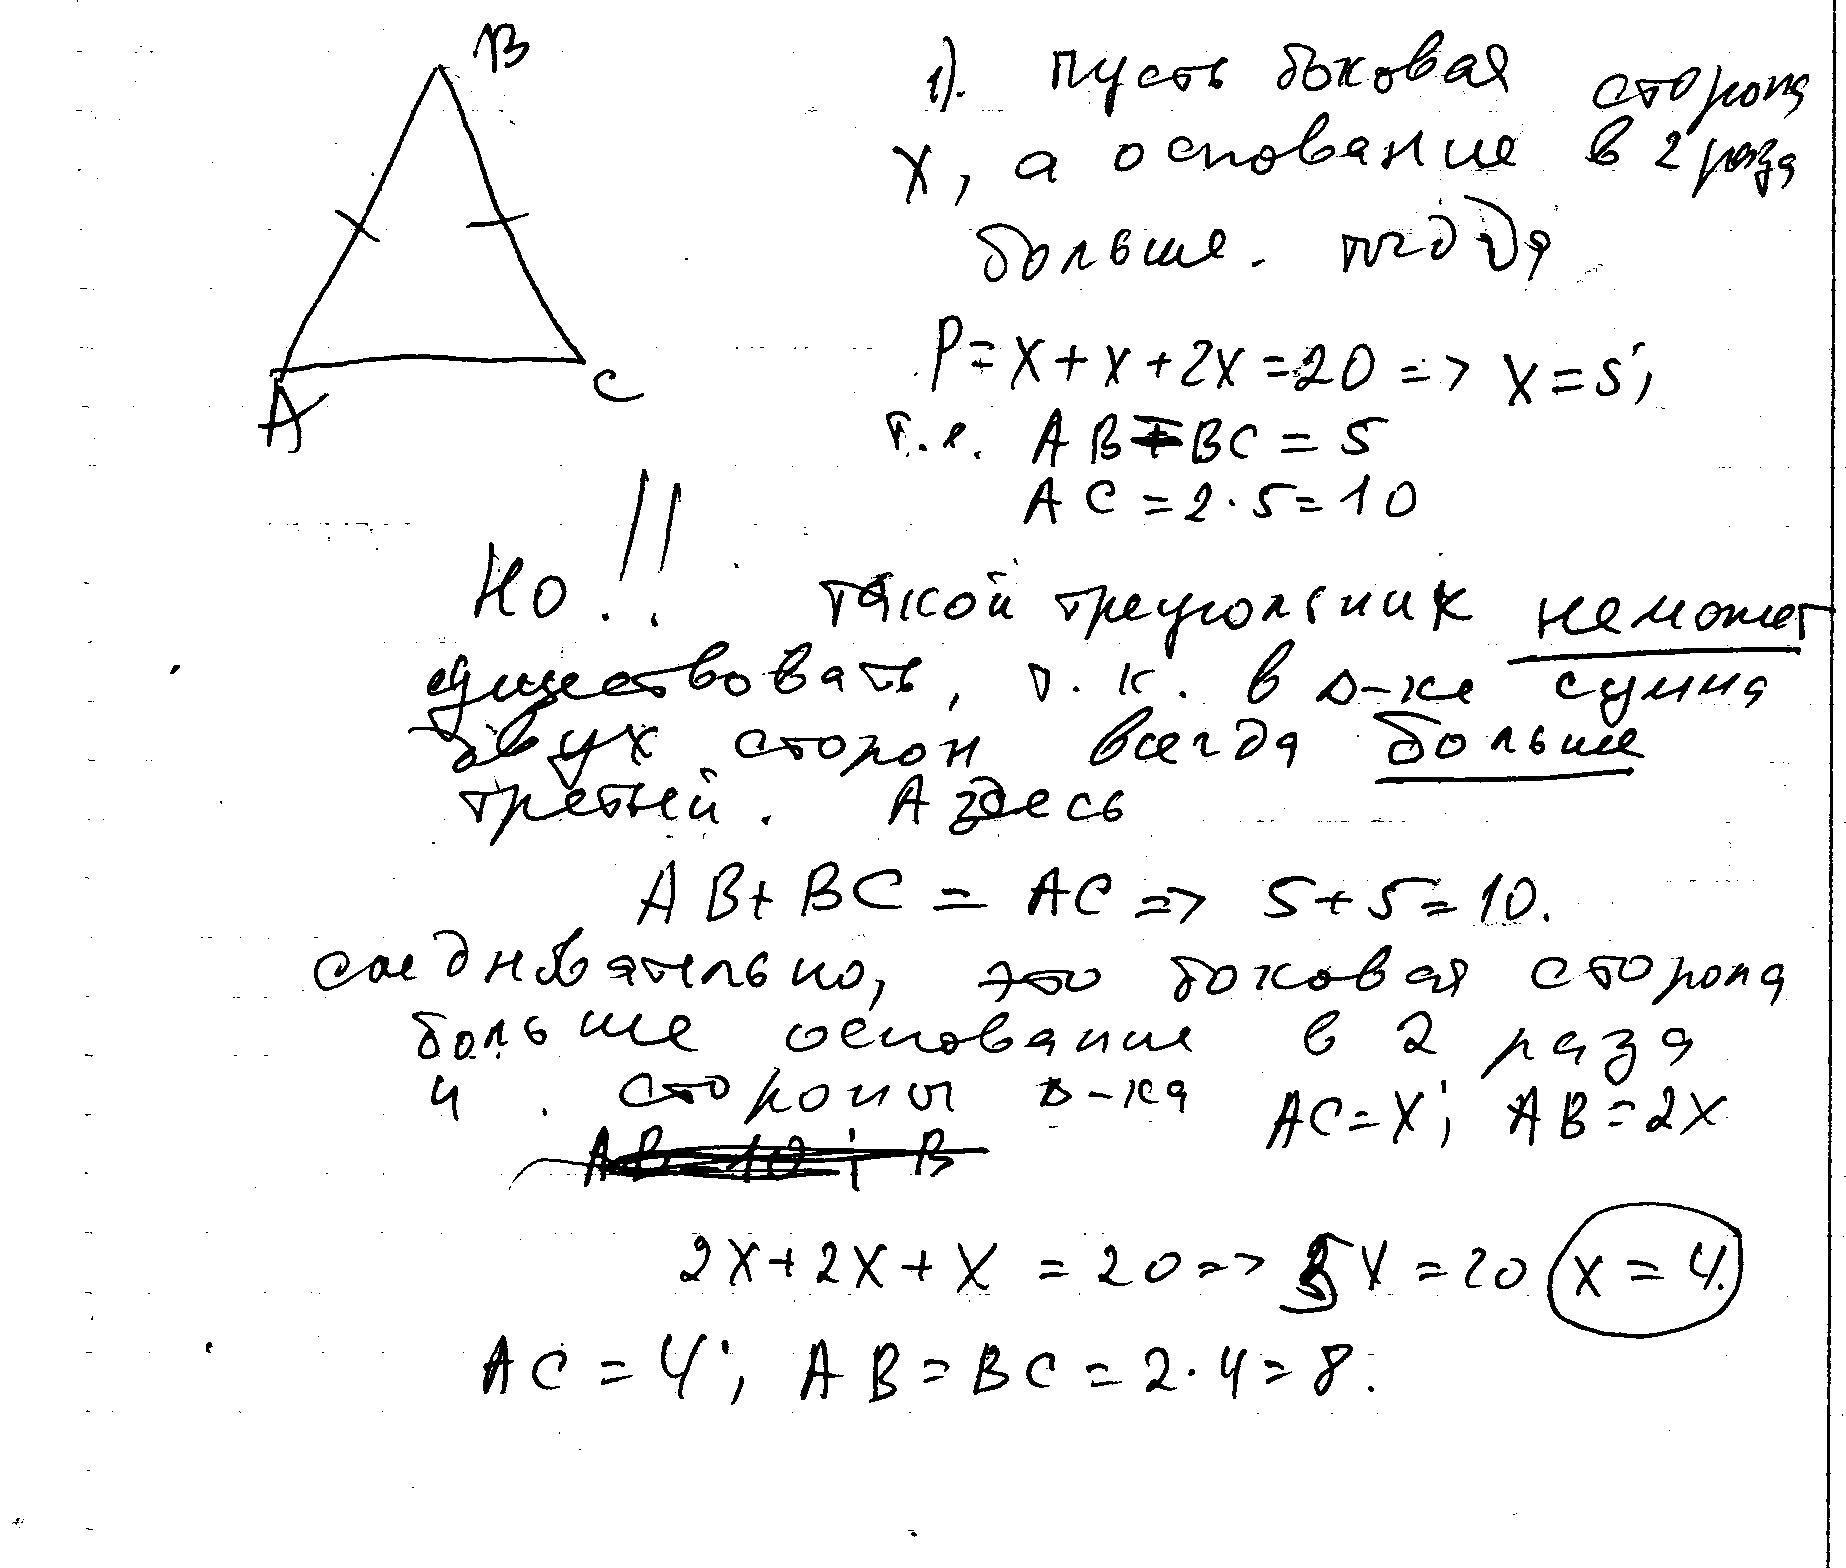 B
A
C
1). Пусть боковая сторона
x, а основание в 2 раза
больше. тогда
P = x + x + 2x = 20 => x = 5;
т.е. AB = BC = 5
AC = 2 · 5 = 10
Но!! такой треугольник не может
существовать, т.к. в Δ-ке сумма
двух сторон всегда больше
третьей. А здесь
AB + BC = AC => 5 + 5 = 10.
следовательно, это боковая сторона
больше основание в 2 раза
и стороны Δ-ка AC = x; AB = 2x
2x + 2x + x = 20 => 5x = 20 x = 4.
AC = 4; AB = BC = 2 · 4 = 8.